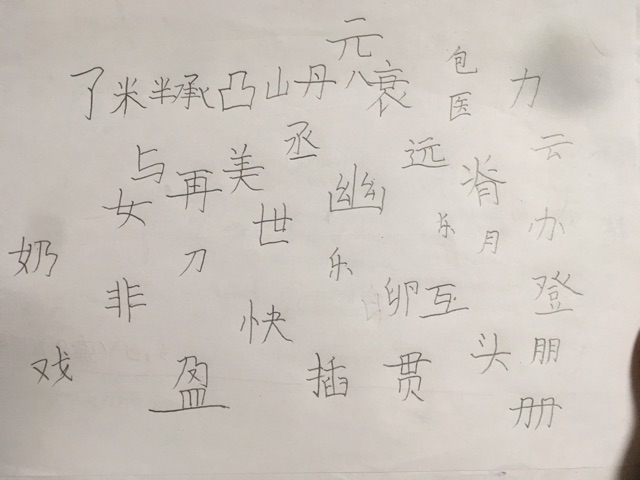 元
了米半承凸山丹八衰包力
医
与美丞远脊云
女再世幽乐月办
奶刀乐
非快卵互登
戏盈插贯头朋
册